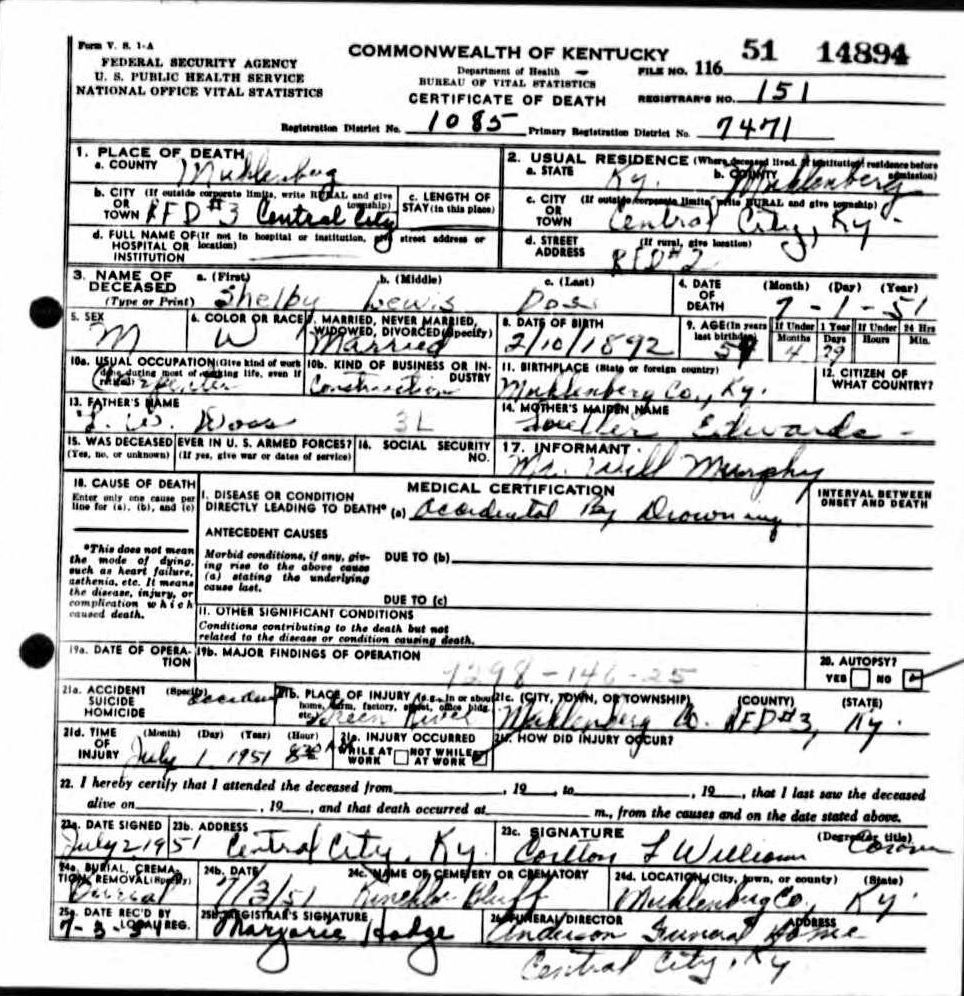 Form V. S. 1-A
FEDERAL SECURITY AGENCY
U. S. PUBLIC HEALTH SERVICE
NATIONAL OFFICE VITAL STATISTICS
COMMONWEALTH OF KENTUCKY
Department of Health
BUREAU OF VITAL STATISTICS
CERTIFICATE OF DEATH
51 14894
FILE NO. 116
REGISTRAR'S NO. 151
Registration District No. 1085 Primary Registration District No. 7471
1. PLACE OF DEATH
a. COUNTY Muhlenberg
b. CITY (If outside corporate limits, write RURAL and give township)
OR TOWN RFD #3 Central City
c. LENGTH OF STAY (in this place)
d. FULL NAME OF (If not in hospital or institution, give street address or location)
HOSPITAL OR INSTITUTION
2. USUAL RESIDENCE (Where deceased lived. If institution: residence before admission)
a. STATE Ky. b. COUNTY Muhlenberg
c. CITY (If outside corporate limits, write RURAL and give township)
OR TOWN Central City, Ky
d. STREET ADDRESS (If rural, give location)
RFD #2
3. NAME OF DECEASED (Type or Print)
a. (First) b. (Middle) c. (Last)
Shelby Lewis Doss
4. DATE OF DEATH (Month) (Day) (Year)
7-1-51
5. SEX M
6. COLOR OR RACE W
7. MARRIED, NEVER MARRIED, WIDOWED, DIVORCED (Specify)
Married
8. DATE OF BIRTH
2/10/1892
9. AGE (In years last birthday) 59
If Under 1 Year Months 4 Days 29
If Under 24 Hrs Hours Min.
10a. USUAL OCCUPATION (Give kind of work done during most of working life, even if retired)
Carpenter
10b. KIND OF BUSINESS OR INDUSTRY
Construction
11. BIRTHPLACE (State or foreign country)
Muhlenberg Co., Ky.
12. CITIZEN OF WHAT COUNTRY?
13. FATHER'S NAME
Doss 3L
14. MOTHER'S MAIDEN NAME
Edwards
15. WAS DECEASED EVER IN U. S. ARMED FORCES?
(Yes, no, or unknown) (If yes, give war or dates of service)
16. SOCIAL SECURITY NO.
17. INFORMANT
Mr. Will Murphy
18. CAUSE OF DEATH
Enter only one cause per line for (a), (b), and (c)
*This does not mean the mode of dying, such as heart failure, asthenia, etc. It means the disease, injury, or complication which caused death.
MEDICAL CERTIFICATION
INTERVAL BETWEEN ONSET AND DEATH
I. DISEASE OR CONDITION DIRECTLY LEADING TO DEATH* (a) Accidental By Drowning
ANTECEDENT CAUSES
Morbid conditions, if any, giving rise to the above cause (a) stating the underlying cause last.
DUE TO (b)
DUE TO (c)
II. OTHER SIGNIFICANT CONDITIONS
Conditions contributing to the death but not related to the disease or condition causing death.
19a. DATE OF OPERATION
19b. MAJOR FINDINGS OF OPERATION
9298-146-25
20. AUTOPSY?
YES NO
21a. ACCIDENT SUICIDE HOMICIDE (Specify) Accident
21b. PLACE OF INJURY (e.g., in or about home, farm, factory, street, office bldg. etc.)
Green River
21c. (CITY, TOWN, OR TOWNSHIP) (COUNTY) (STATE)
Muhlenberg Co. RFD #3, Ky.
21d. TIME OF INJURY (Month) (Day) (Year) (Hour)
July 1 1951
21e. INJURY OCCURRED
WHILE AT WORK NOT WHILE AT WORK
21f. HOW DID INJURY OCCUR?
22. I hereby certify that I attended the deceased from , 19 , to , 19 , that I last saw the deceased
alive on , 19 , and that death occurred at m., from the causes and on the date stated above.
23a. DATE SIGNED
July 2 1951
23b. ADDRESS
Central City, Ky.
23c. SIGNATURE (Degree or title)
Carlton L Williams Coroner
24a. BURIAL, CREMATION, REMOVAL (Specify)
Burial
24b. DATE
7/3/51
24c. NAME OF CEMETERY OR CREMATORY
Kincheloe Bluff
24d. LOCATION (City, town, or county) (State)
Muhlenberg Co., Ky.
25a. DATE REC'D BY LOCAL REG.
7-3-51
25b. REGISTRAR'S SIGNATURE
Marjorie Hodge
26. FUNERAL DIRECTOR ADDRESS
Anderson Funeral Home
Central City, Ky